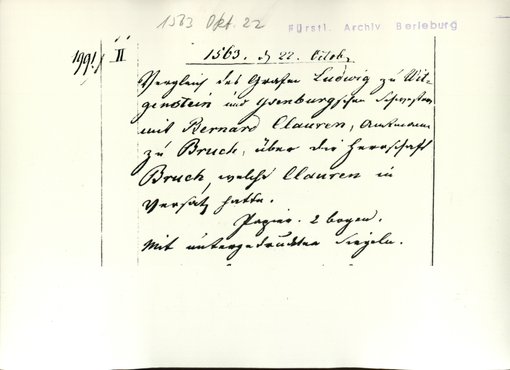 1563 Okt. 22
Fürstl. Archiv Berleburg
1991/ II
1563. d 22. Octob.
Vergleich des Grafen Ludwig zu Wit-
genstein und Ysenburgschen Schwestern
mit Bernard Clauren, Amtmann
zu Bruch, über die Herrschaft
Bruch, welche Clauren in
Versatz hatte.
Papier. 2 bogen.
Mit untergedruckten Siegeln.